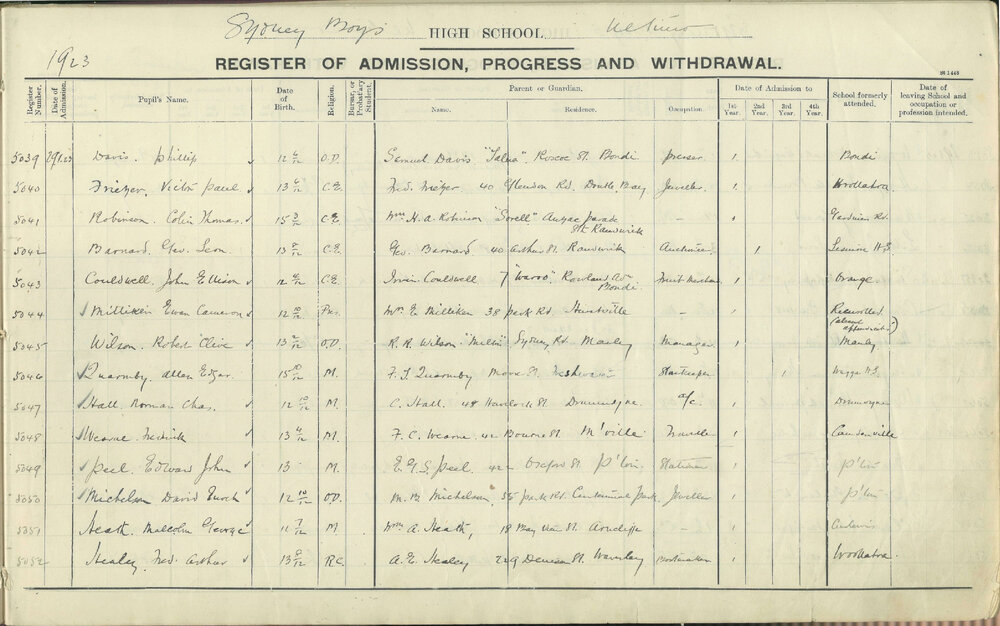 Sydney Boys HIGH SCHOOL Ultimo
1923
REGISTER OF ADMISSION, PROGRESS AND WITHDRAWAL.
Register Number. Date of Admission. Pupil's Name. Date of Birth. Religion. Bursar, or Probat'ary Student. Parent or Guardian. Name. Residence. Occupation. Date of Admission to 1st Year. 2nd Year. 3rd Year. 4th Year. School formerly attended. Date of leaving School and occupation or profession intended.
5039 Davis. Phillip 12 6/12 O.D. Samuel Davis Roscoe St. Bondi presser 1 Bondi
5040 Victor Paul 13 C.E. 40 Glendon Rd. Double Bay Jeweller 1 Woollahra
5041 Robinson. Colin Thomas. 15 3/12 C.E. Wm H. A. Robinson "Sorell" Anzac parade Sth Randwick - 1 Gardiner Rd.
5042 Barnard. Geo. Leon. 13 C.E. Geo. Barnard 40 Arthur St. Randwick Auctioneer 1 H.S.
5043 Couldwell, John Ellison 12 C.E. Irwin Couldwell 7 Rowland Ave Bondi Fruit Merchan 1 Orange
5044 Milliken Ewan Cameron 12 10/12 Pres. Wm E. Milliken 38 park Rd. Hurstville - 1
5045 Wilson. Robert Clive 13 O.D. R. R. Wilson Sydney Rd. Manly Manager 1 Manly
5046 Quarmby. Allan Edgar. 15 10/12 M. F. J. Quarmby Moore St. Storekeeper 1 Wagga H.S.
5047 Hall. Norman Chas. 12 10/12 M. C. Hall. 48 Havelock St. Drummoyne a/c. 1 Drummoyne
5048 Wearne Fredrick 13 M. F. C. Wearne 42 Bourne St. M'ville Traveller 1 Camdenville
5049 Peel. Edward John 13 M. E. G. S. Peel. 42 Oxford St. P'ton Stationer 1 P'ton
5050 Michelson David Enoch 12 10/12 O.D. M. M. Michelson. 55 park Rd. Centennial park. Jeweller 1 P'ton
5051 Heath. Malcolm George 11 7/12 M. Wm A. Heath, 18 Bay View St. Arncliffe - 1
5052 Healey. Fred. Arthur 13 R.C. A. E. Healey 229 Denison St. Waverley Bootmaker 1 Woollahra